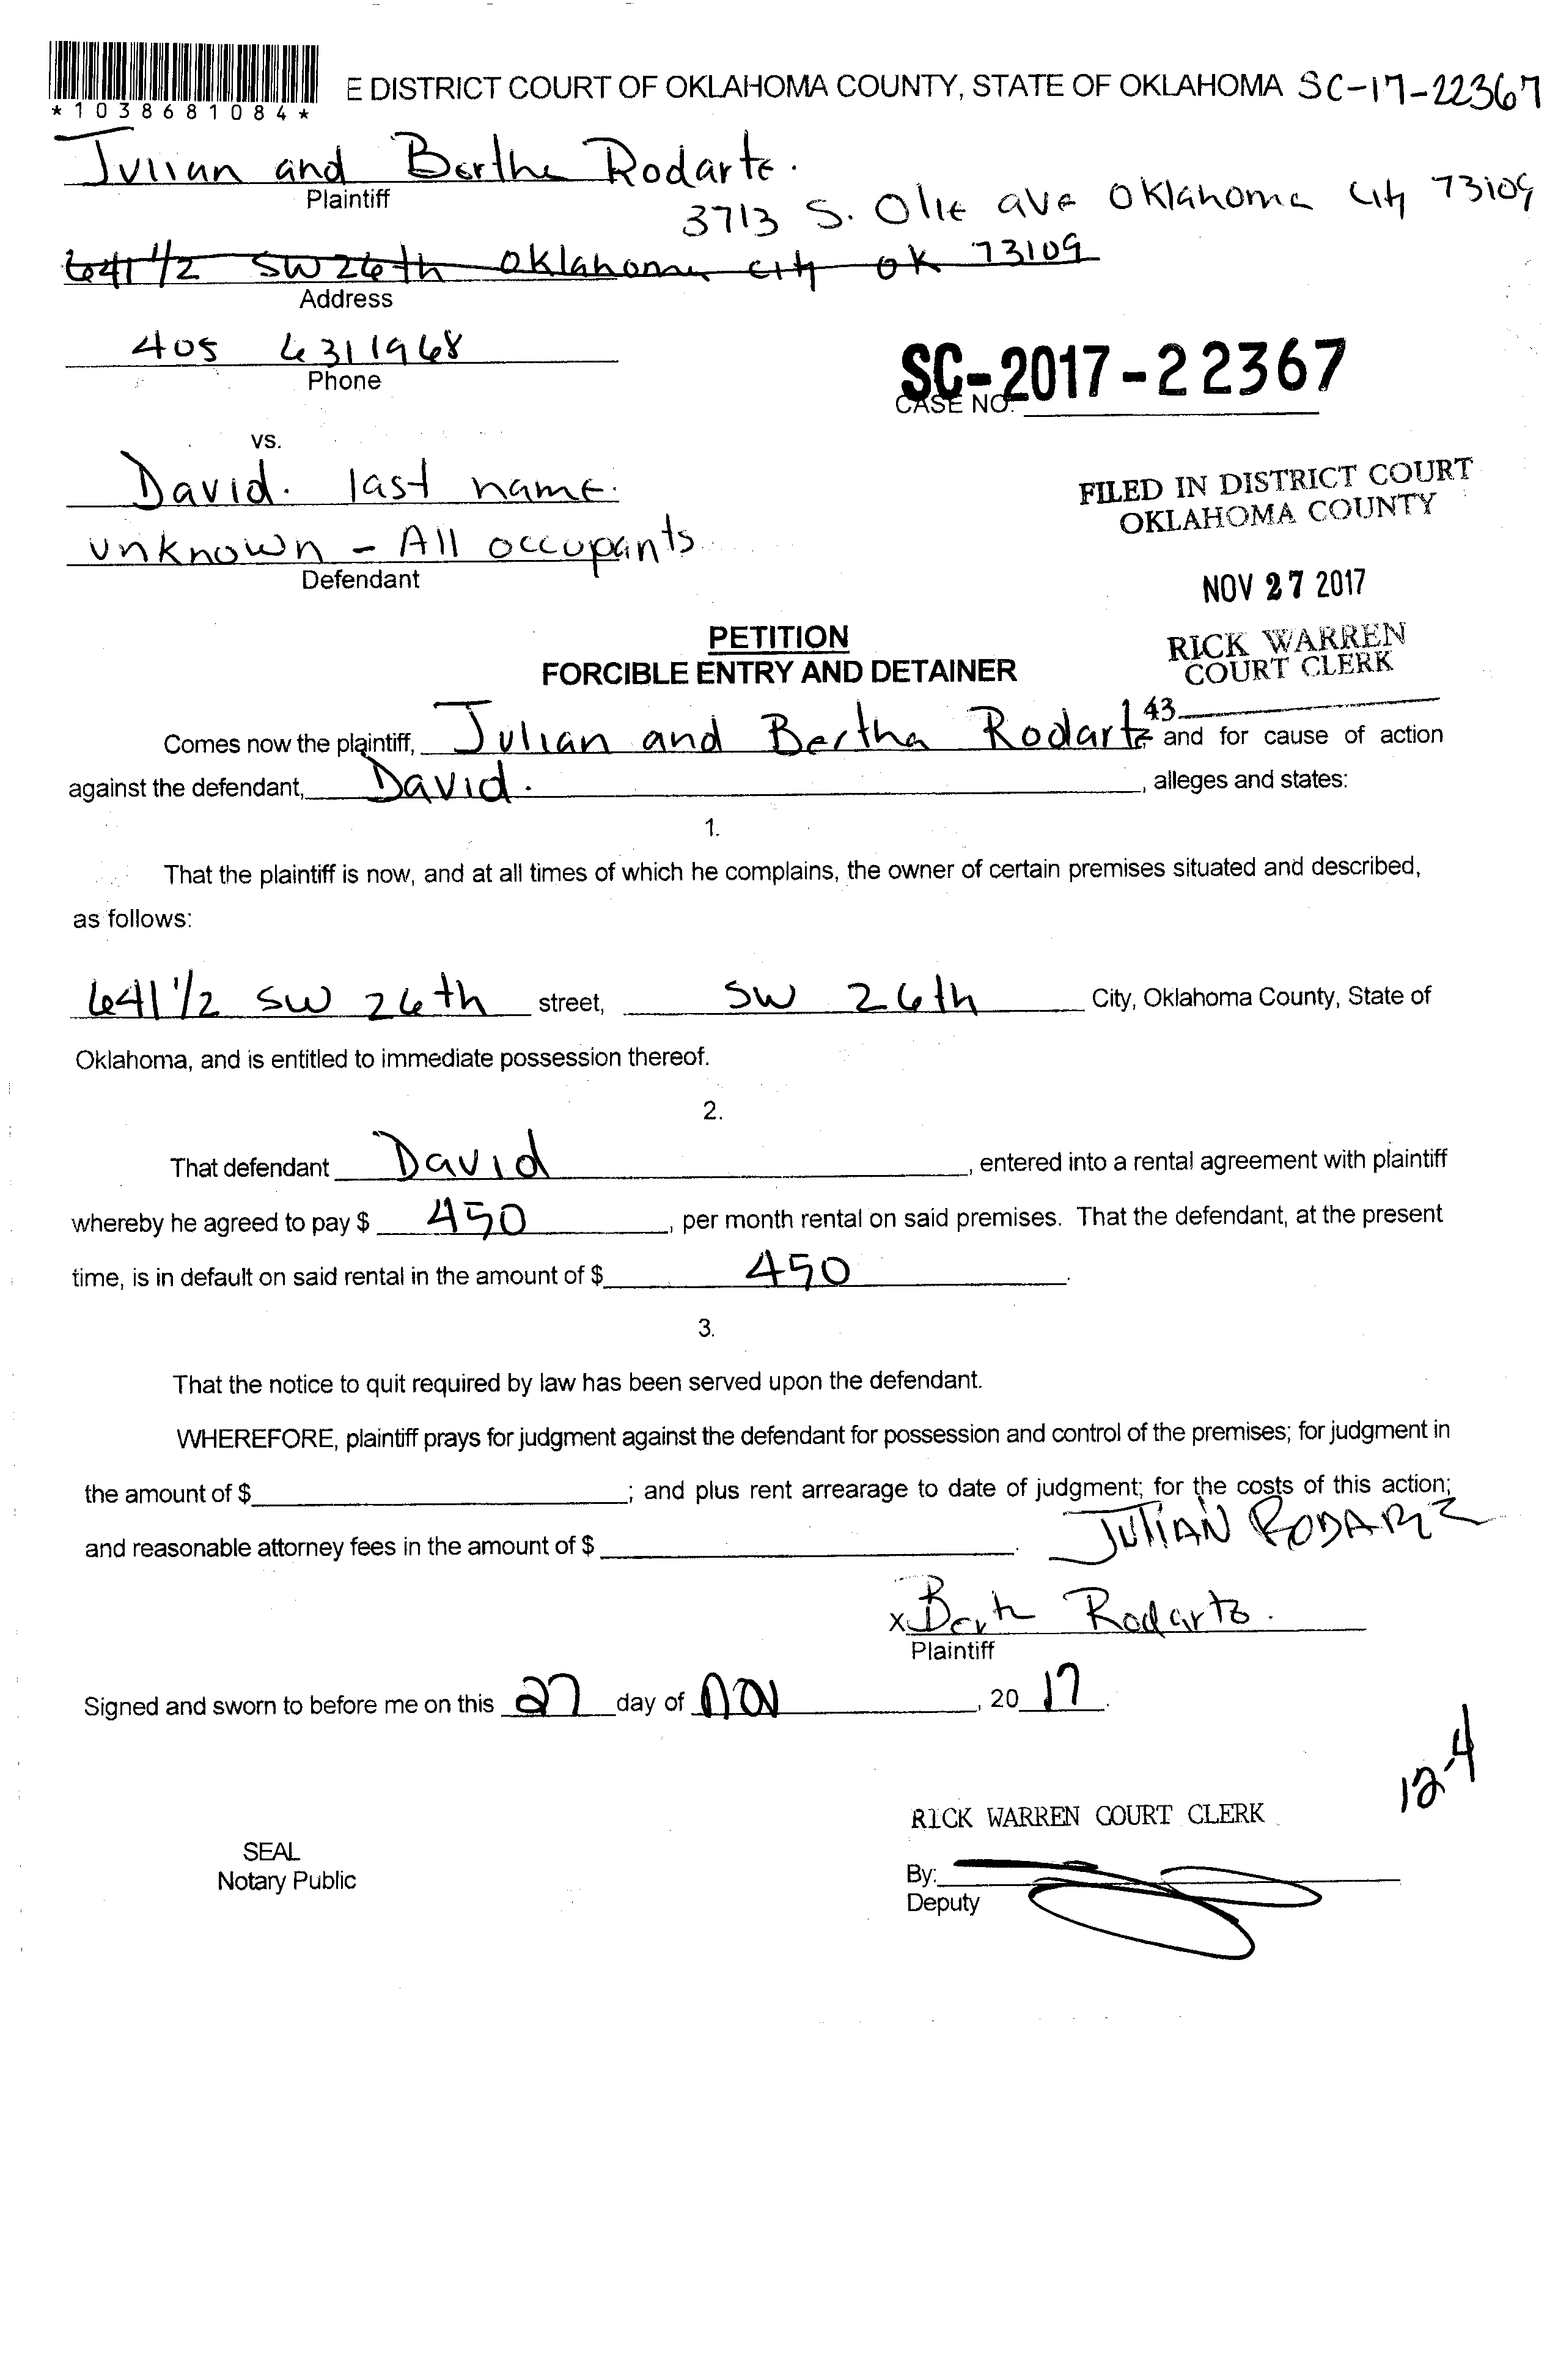 E DISTRICT COURT OF OKLAHOMA COUNTY, STATE OF OKLAHOMA SC-17-22367
*1038681084*
Julian and Bertha Rodarte.
Plaintiff
3713 S. Olie ave Oklahoma City 73109
641 1/2 SW 26th Oklahoma City OK 73109
Address
405 6311968
Phone
SC-2017-22367
CASE NO.
vs.
David. last name.
unknown - All occupants
Defendant
FILED IN DISTRICT COURT
OKLAHOMA COUNTY
NOV 27 2017
RICK WARREN
COURT CLERK
43
PETITION
FORCIBLE ENTRY AND DETAINER
Comes now the plaintiff, Julian and Bertha Rodarte and for cause of action
against the defendant, David. , alleges and states:
1.
That the plaintiff is now, and at all times of which he complains, the owner of certain premises situated and described,
as follows:
641 1/2 SW 26th street, SW 26th City, Oklahoma County, State of
Oklahoma, and is entitled to immediate possession thereof.
2.
That defendant David , entered into a rental agreement with plaintiff
whereby he agreed to pay $ 450 , per month rental on said premises. That the defendant, at the present
time, is in default on said rental in the amount of $ 450 .
3.
That the notice to quit required by law has been served upon the defendant.
WHEREFORE, plaintiff prays for judgment against the defendant for possession and control of the premises; for judgment in
the amount of $ ; and plus rent arrearage to date of judgment; for the costs of this action;
and reasonable attorney fees in the amount of $ .
JULIAN RODARTE
x Berth Rodarte.
Plaintiff
Signed and sworn to before me on this 27 day of NOV , 20 17.
12-4
RICK WARREN COURT CLERK
SEAL
Notary Public
By:
Deputy